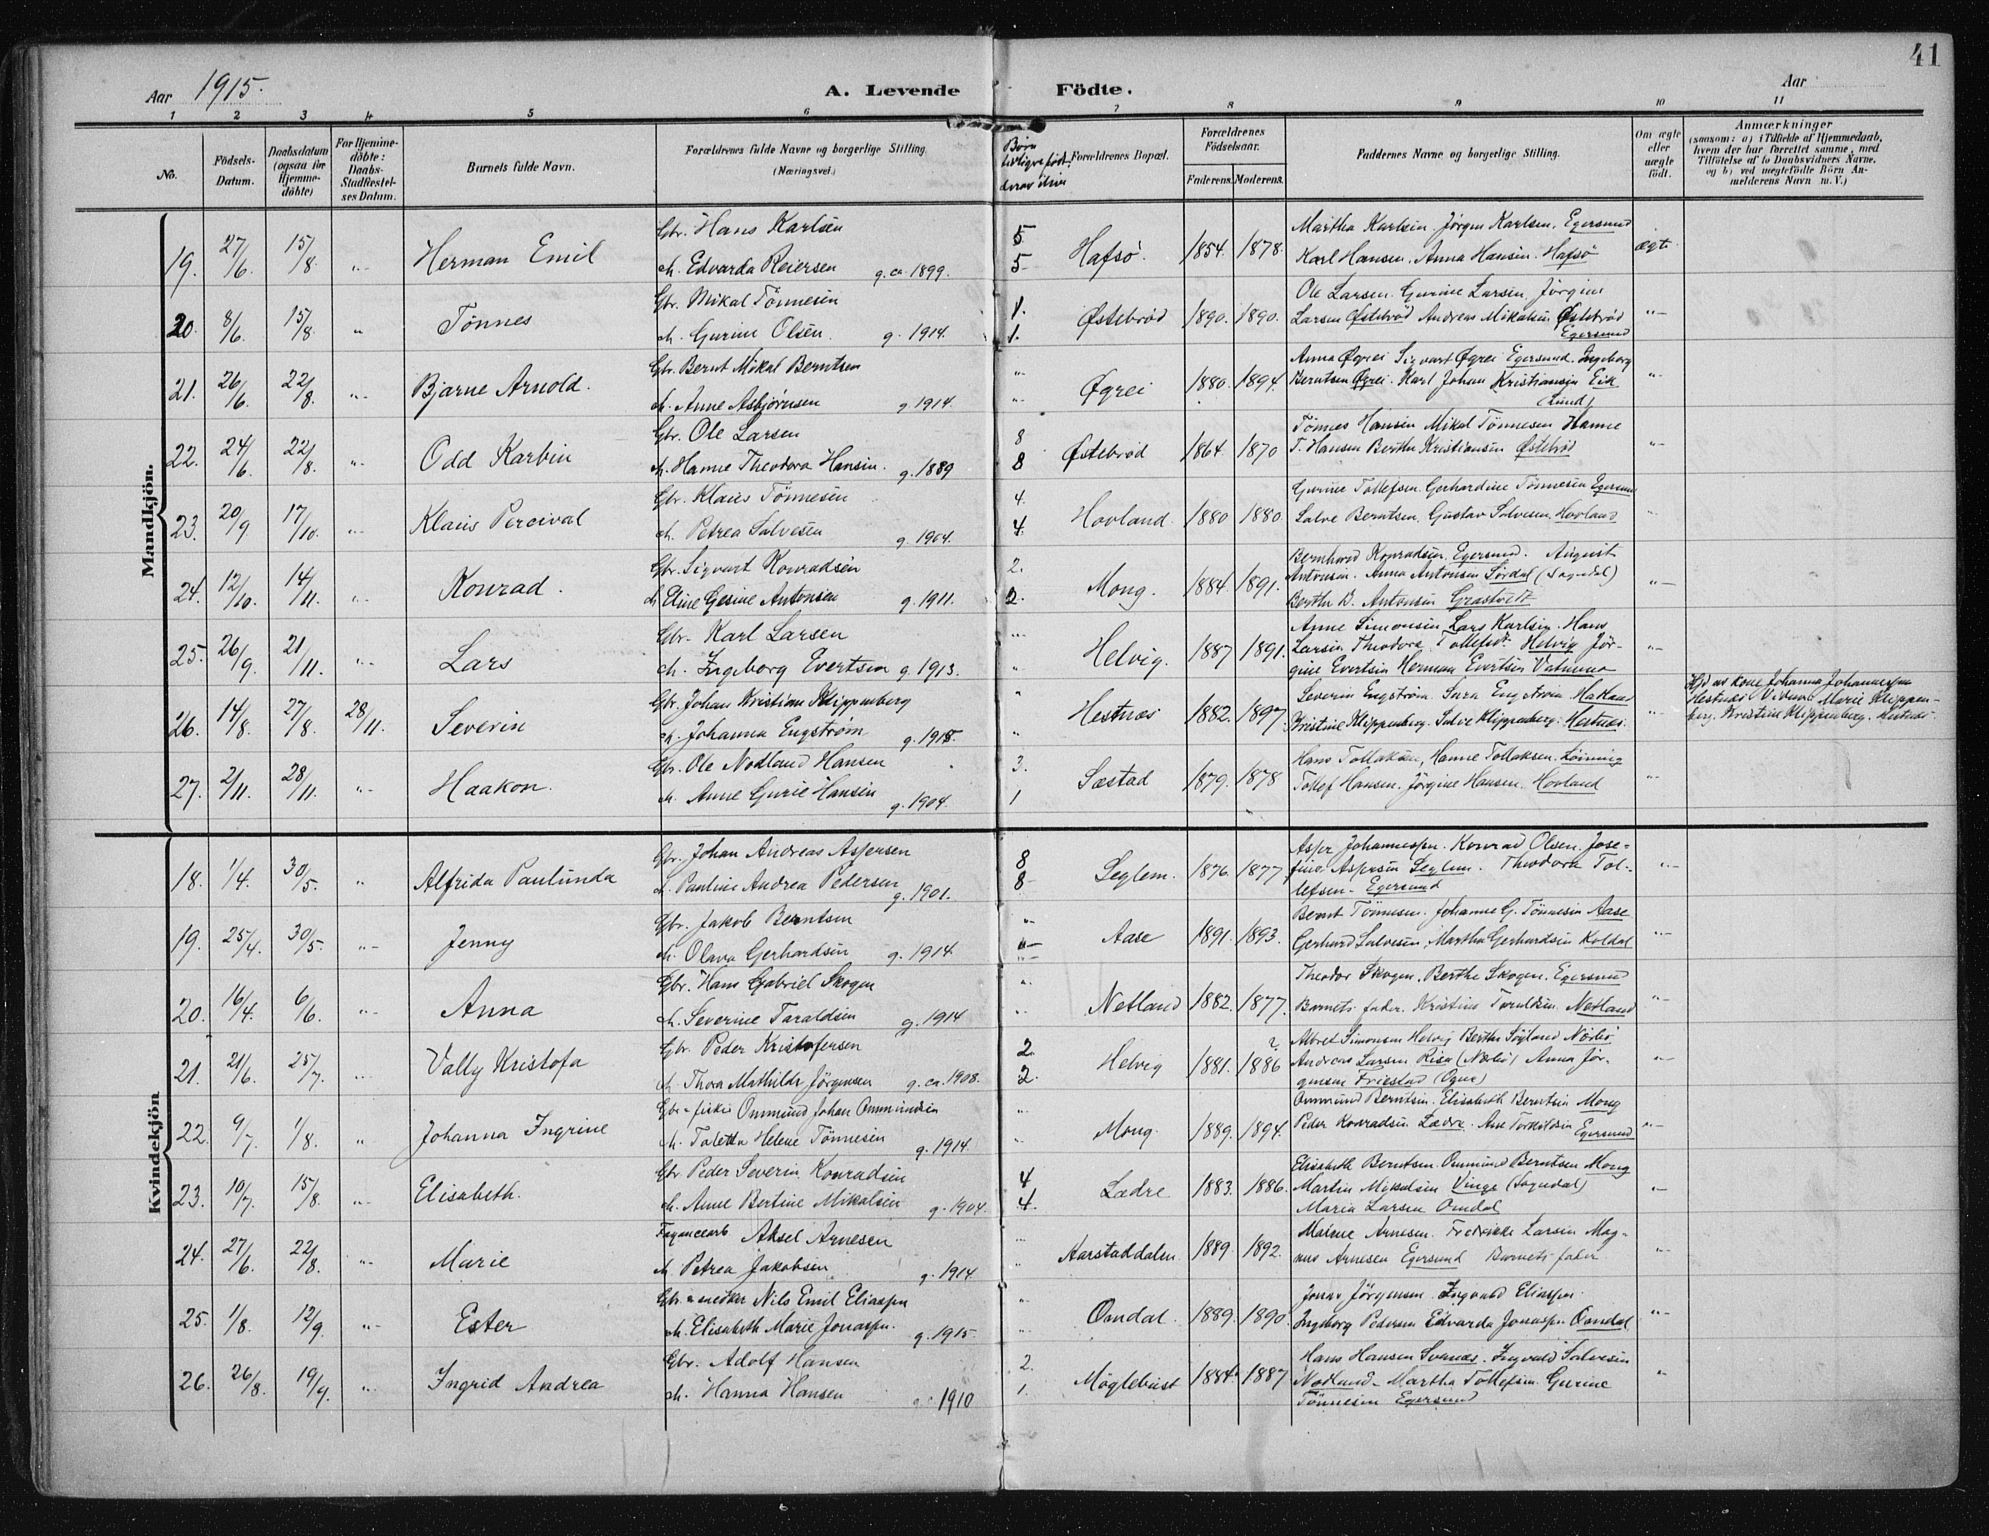 41
Aar 1915.
A. Levende Födte.
Aar
1 2 3 4 5 6 7 8 9 10 11
No.
Födsels-Datum.
Daabsdatum (ogsaa for Hjemmedöbte)
For Hjemmedöbte: Daabs-Stadfestelses Datum.
Barnets fulde Navn.
Forældrenes fulde Navne og borgerlige Stilling (Næringsvei.)
Børn
Forældrenes Bopæl.
Forældrenes Födselsaar.
Faderens. Moderens.
Faddernes Navne og borgerlige Stilling.
Om ægte eller uægte födt.
Anmærkninger
(saasom: a) i Tilfælde af Hjemmedaab, hvem der har forrettet samme, med Tilföielse af to Daabsvidners Navne, og b) ved uegtefödte Börn Anmelderens Navn m. V.)
Mandkjön.
19. 27/6 15/8 Herman Emil
Gbr. Hans Karlsen
M. Edvarda Reiersen g. ca 1899.
5 5 Hafsø. 1854. 1878.
Martha Karlsen Jørgen Karlsen. Egersund
Karl Hansen. Anna Hansen. Hafsø
ægte
20. 8/6 15/8 Tønnes
Gbr. Mikal Tønnesen
M. Gurine Olsen. g. 1914.
1. 1. Østebrød 1890. 1890.
Ole Larsen. Gurine Larsen. Jørgine
Larsen Østebrød Andreas Mikalsen Østebrød
Egersund
21. 26/6 22/8 Bjarne Arnold.
Gbr. Bernt Mikal Berntsen
M. Anne Asbjørnsen g 1914.
Øgrei 1880. 1894.
Anna Øgrei Sigvart Øgrei Egersund. Ingeborg
Berntsen Øgrei. Karl Johan Kristiansen Eik
(Lund)
22. 24/6 22/8 Odd Karbin
Gbr. Ole Larsen
M. Hanne Theodora Hansen. g. 1889
8 8 Østebrød 1864 1870
Tønnes Hansen Mikal Tønnesen Hanne
T. Hansen Berthe Kristiansen Østebrød
23. 20/9 17/10. Klaus Percival
Gbr. Klaus Tønnesen
M. Petrea Salvesen g. 1904.
4. 4. Hovland. 1880 1880
Gurine Tollefsen. Gerhardine Tønnesen Egersund
Salve Berntsen. Gustav Salvesen. Hovland
24. 12/10. 14/11. Konrad.
Gbr. Sigvart Konradsen
M. Eline Gesine Antonsen g. 1911.
2. 2. Mong. 1884. 1891.
Bernhard Konradsen. Egersund. August
Antonsen. Anna Antonsen Sørdal (Sogndal)
Berthe B. Antonsen
25. 26/9. 21/11. Lars
Gbr. Karl Larsen
M. Ingeborg Evertsen g. 1913.
Helvig. 1887 1891.
Anne Simonsen Lars Karlsen. Hans
Larsen Theodora Helvig Jør-
gine Evertsen Herman Evertsen Vatnemo
26. 14/8. 27/8. 28/11. Severin
Gbr. Johan Kristian Klippenberg
M. Johanna Engstrøm g. 1915.
Hestnes 1882. 1897
Severin Engstrøm. Sara Engstrøm
Kristine Klippenberg. Salve Klippenberg. Hestnes.
Hjd av kone Johanna Johannessen
Hestnes Vidner Marie Klippen-
berg. Kristine Klippenberg. Hestnes.
27. 2/11. 28/11. Haakon.
Gbr. Ole Nodland Hansen
M. Anne Gurie Hansen g. 1904.
3. 1 Sæstad 1879. 1878
Hans Tollaksen, Hanne Tollaksen. Løining
Tollef Hansen. Jørgine Hansen. Hovland
Kvindekjön
18. 1/4. 30/5. Alfrida Paulunda
Gbr. Johan Andreas Aspersen
M. Pauline Andrea Pedersen g. 1901.
8 8 Seglem. 1876. 1877
Konrad Olsen. Jose-
fine Aspersen Seglem. Theodora Tol-
lefsen. Egersund
19. 25/4. 30/5. Jenny
Gbr. Jakob Berntsen
M. Olava Gerhardsen g. 1914
Aase 1891. 1893.
Bernt Tønnesen. Johanne G. Tønnesen Aase
Gerhard Salvesen. Martha Gerhardsen Koldal
20. 16/4. 6/6. Anna
Gbr. Hans Gabriel Skogen
M. Severine Taraldsen g. 1914
Netland 1882 1877.
Theodor Skogen. Berthe Skogen. Egersund
Barnets fader. Kristine Taraldsen. Netland
21. 21/6. 25/7. Vally Kristofa
Gbr. Peder Kristofersen
M. Thora Mathilde Jørgensen g. ca. 1908.
2. 2. Helvig 1881. ? 1886
Albret Simonsen Helvig Berthe
Andreas Larsen Risa Anna Jør-
gensen Friestad (Ogne)
22. 9/7. 1/8. Johanna Ingrine
Gbr - fisker Ommund Johan Ommundsen
M. Toletta Helene Tønnesen g. 1914.
Mong. 1889. 1894.
Ommund Berntsen. Elisabeth Berntsen Mong
Peder Konradsen Lædre. Ane Torkildsen Egersund
23. 10/7. 15/8. Elisabeth.
Gbr. Peder Severin Konradsen
M. Anne Bertine Mikalsen g. 1904.
4 4. Lædre 1883. 1886.
Elisabeth Berntsen. Ommund Berntsen Mong
Martin Mikalsen Vinge (Sogndal)
Maria Larsen Omdal
24. 27/6. 22/8. Marie
Fayancearb Aksel Arnesen
M. Petrea Jakobsen g. 1914
Aarstaddalen. 1889. 1892.
Malene Arnesen. Fredrikke Larsen Mag-
nus Arnesen Egersund Barnets fader
25. 1/8. 12/9. Ester
Gbr - snedker Nils Emil Eliassen
M. Elisabeth Marie Jonassen. g. 1915.
Omdal. 1889. 1890.
Jonas Jørgensen. Ingvald Eliassen.
Ingeborg Pedersen Edvarda Jonassen Omdal
26. 26/8. 19/9. Ingrid Andrea
Gbr. Adolf Hansen
M. Hanna Hansen g. 1910
2. 1. Møglebust 1884. 1887
Hans Hansen Svanes. Ingvald Salvesen
Nodland - Martha Tollefsen. Gurine
Tønnesen Egersund